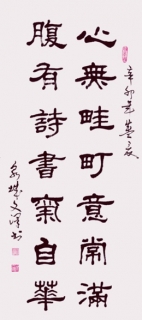 心無畦町意常滿
腹有詩書氣自華
辛卯